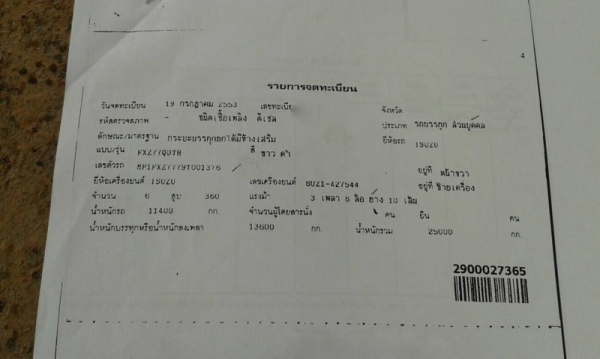 4
รายการจดทะเบียน
วันจดทะเบียน 19 กรกฎาคม 2553 เลขทะเบีย จังหวัด
รหัสตรวจสภาพ - ชนิดเชื้อเพลิง ดีเซล ประเภท รถบรรทุก ส่วนบุคคล
ลักษณะ/มาตรฐาน กระบะบรรทุกยกได้มีข้างเสริม ยี่ห้อรถ ISUZU
แบบ/รุ่น สี ขาว
เลขตัวรถ อยู่ที่ หน้าขวา
ยี่ห้อเครื่องยนต์ ISUZU เลขเครื่องยนต์ 6UZ1-427544 อยู่ที่ ซ้ายเครื่อง
จำนวน 6 สูบ 360 แรงม้า 3 เพลา 6 ล้อ ยาง 10 เส้น
น้ำหนักรถ 11400 กก. จำนวนผู้โดยสารนั่ง คน ยืน คน
น้ำหนักบรรทุกหรือน้ำหนักลงเพลา 13600 กก. น้ำหนักรวม 25000 กก.
2900027365